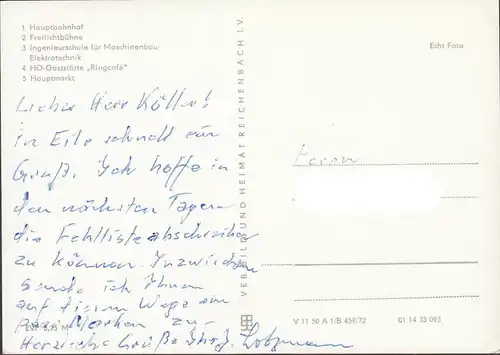 1 Hauptbahnhof
2 Freilichtbühne
3 Ingenieurschule für Maschinenbau
Elektrotechnik
4 HO-Gaststätte „Ringcafé"
5 Hauptmarkt
Lieber Herr Köller!
in Eile schnell ein
Gruß. Ich hoffe in
den nächsten Tagen
die Fehlliste abschreiben
zu können. Inzwischen
sende ich Ihnen
auf diesem Wege ein
paar Marken zu.
Herzliche Grüße Ihr
VEB BILD UND HEIMAT REICHENBACH I. V.
Echt Foto
Herrn
V 11 50 A 1/B 459/72
01 14 35 093